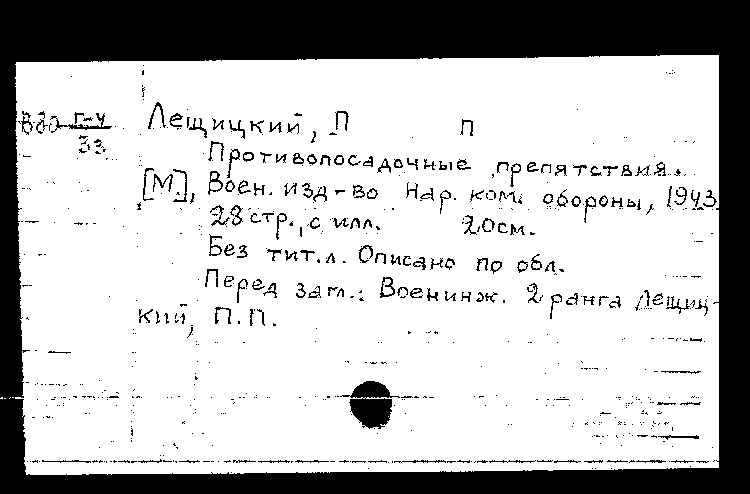 В80 Г-4 Лещицкий, П П
33
Противопосадочные препятствия.
[М.], Воен. изд-во Нар. ком. обороны, 1943.
28 стр., с илл. 20см.
Без тит. л. Описано по обл.
Перед загл.: Военинж. 2 ранга Лещиц-
кий, П.П.